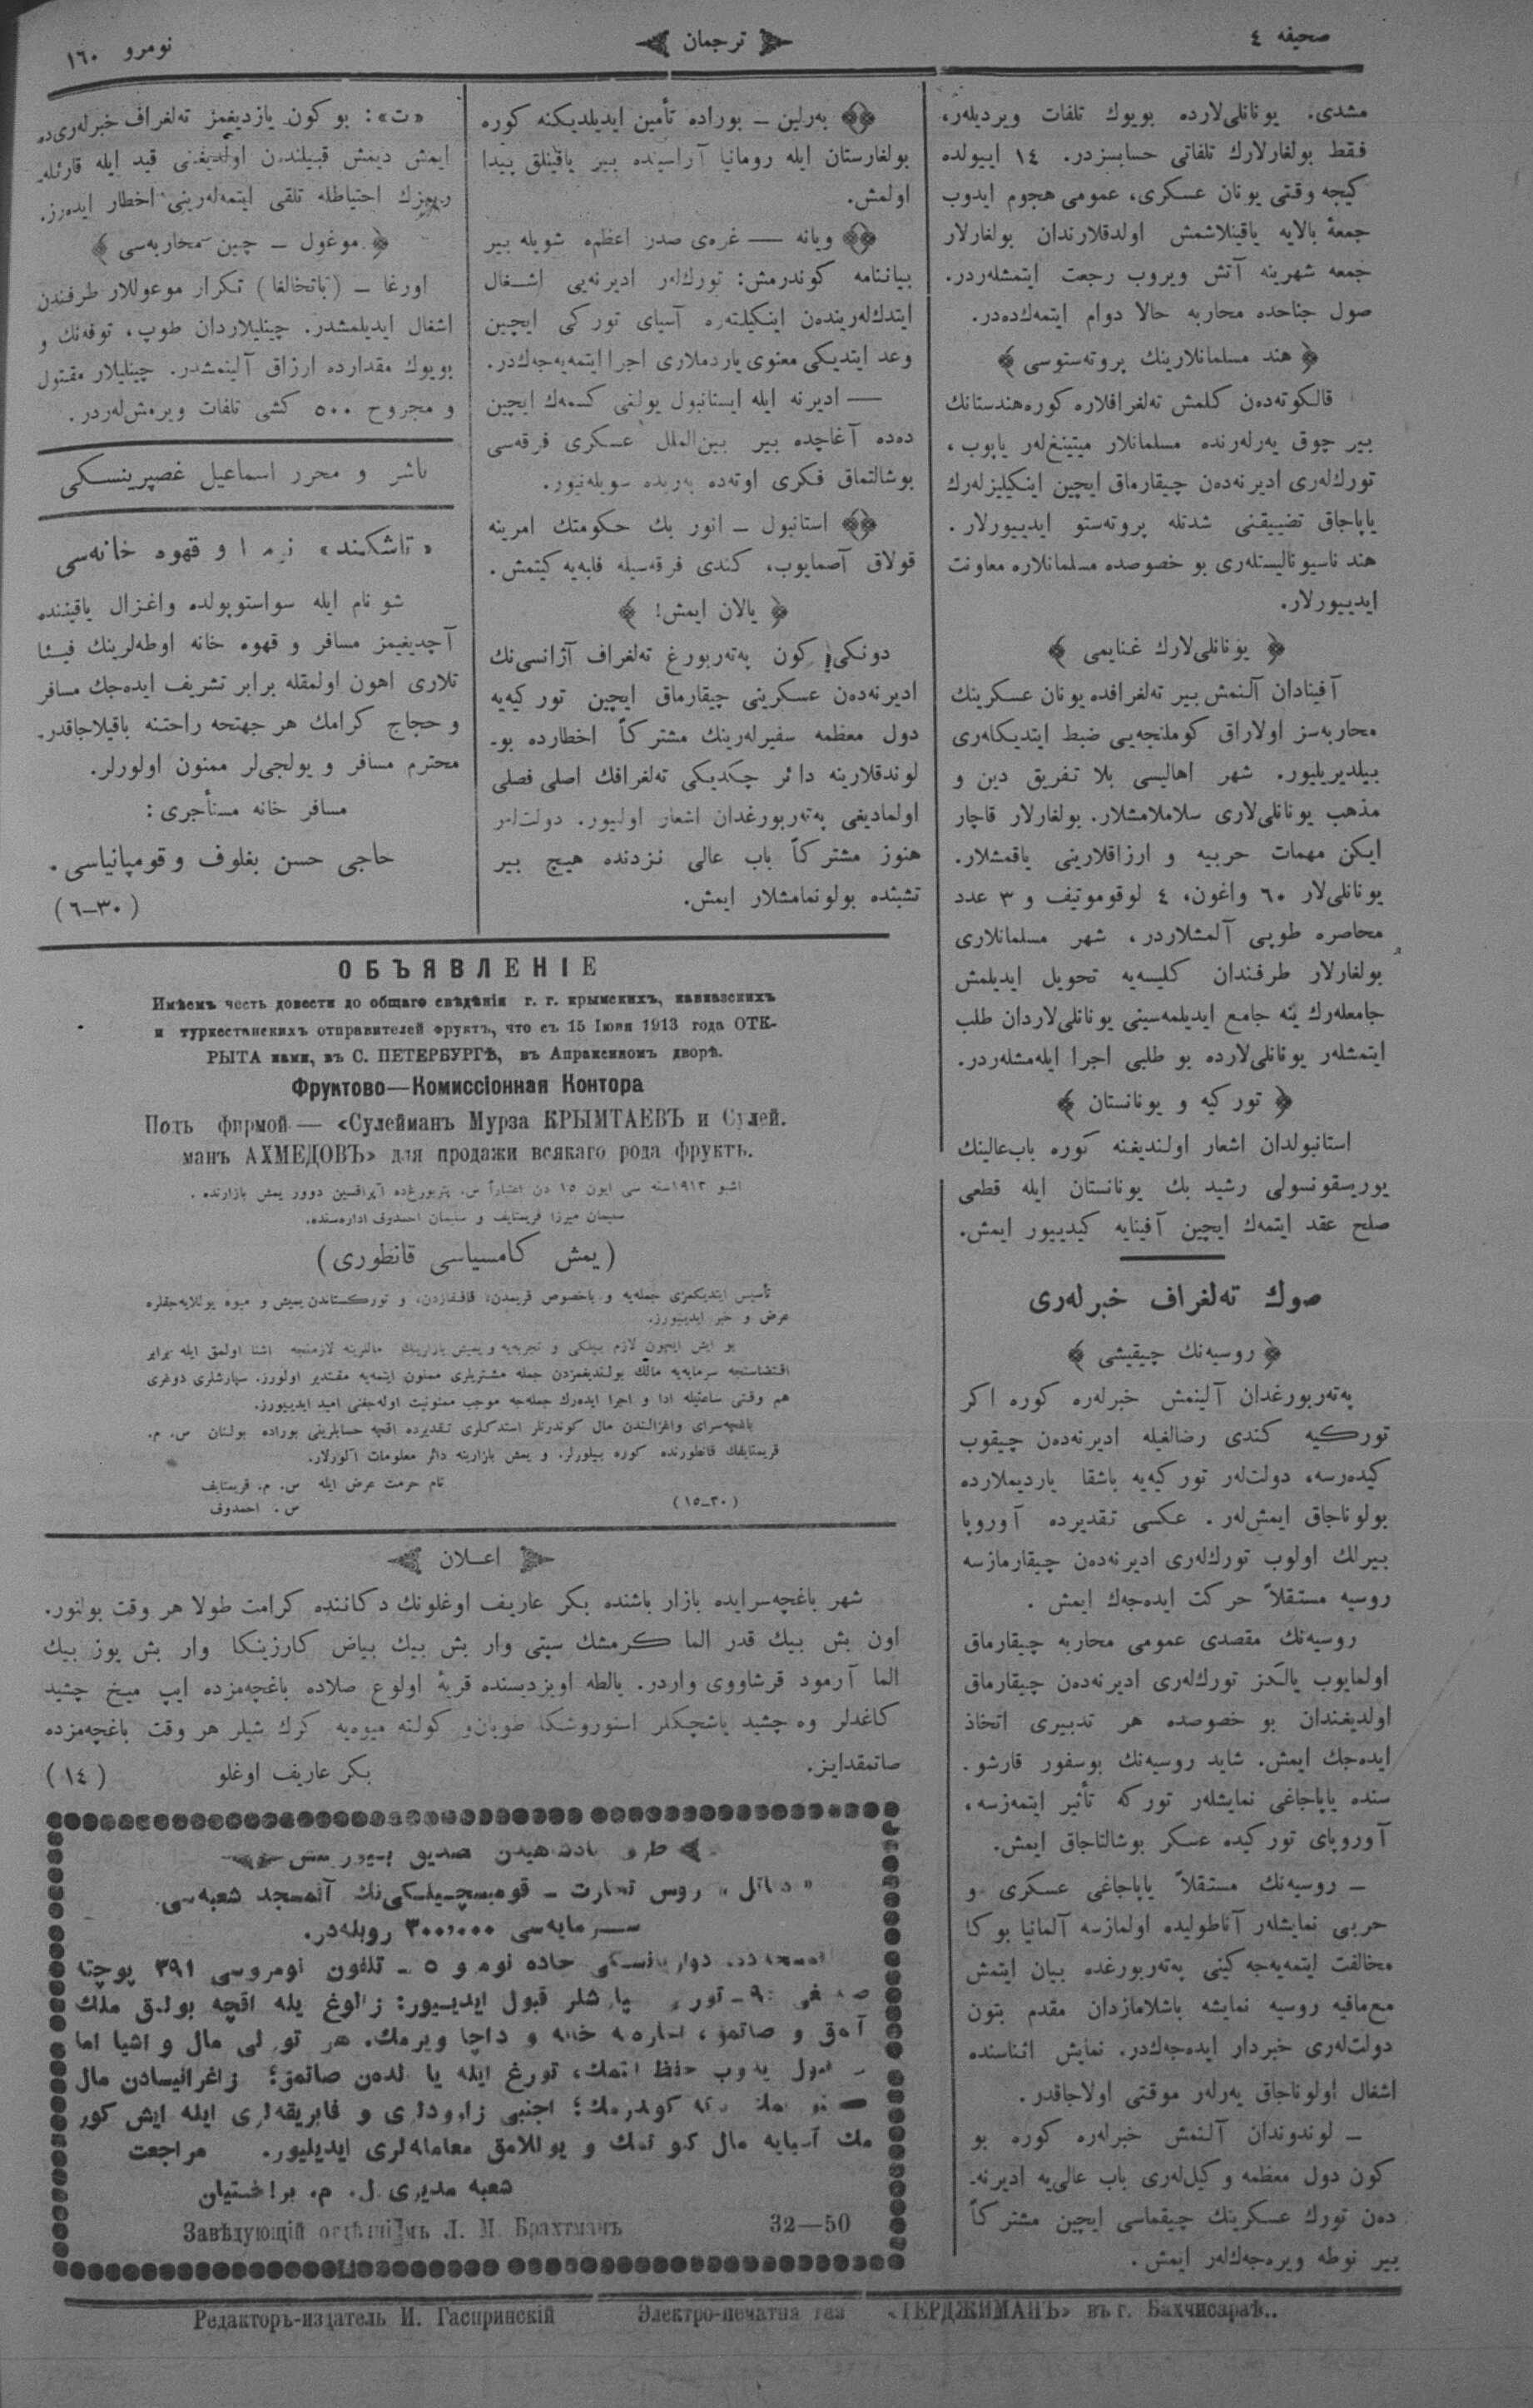 صحیفه ٤
ترجمان
نومرو ١٦٠
مشدی. یونانلی‌لارده بویوك تلفات ویردیله‌ر،
فقط بولغارلارك تلفاتی حسابسزدر. ١٤ اییولده
كیجه وقتی یونان عسكری، عمومی هجوم ایدوب
جمعهٔ بالایه یاقینلاشمش اولدقلارندان بولغارلار
جمعه شهرینه آتش ویروب رجعت ایتمشله‌ردر.
صول جناحده محاربه حالا دوام ایتمه‌ك‌ده‌در.
﴿ هند مسلمانلارینك پروته‌ستوسی ﴾
قالكوته‌دن كلمش ته‌لغرافلاره كوره هندستانك
بیر چوق یه‌رله‌رنده مسلمانلار میتینغ‌له‌ر یاپوب،
تورك‌له‌ری ادیرنه‌ده‌ن چیقارماق ایچین اینكیلیزله‌رك
یاپاجاق تضییقنی شدتله پروته‌ستو ایدییورلار.
هند ناسیونالیستله‌ری بو خصوصده مسلمانلاره معاونت
ایدییورلار.
﴿ یونانلی‌لارك غنایمی ﴾
آفینادان آلنمش بیر ته‌لغرافده یونان عسكرینك
محاربه‌سز اولاراق كوملنجه‌یی ضبط ایتدیكله‌ری
بیلدیریلیور. شهر اهالیسی بلا تفریق دین و
مذهب یونانلی‌لاری سلاملامشلار. بولغارلار قاچار
ایكن مهمات حربیه و ارزاقلارینی یاقمشلار.
یونانلی‌لار ٦٠ واغون، ٤ لوقوموتیف و ٣ عدد
محاصره طوپی آلمشلاردر، شهر مسلمانلاری
بولغارلار طرفندان كلیسه‌یه تحویل ایدیلمش
جامعله‌رك ینه جامع ایدیلمه‌سینی یونانلی‌لاردان طلب
ایتمشله‌ر یونانلی‌لارده بو طلبی اجرا ایله‌مشله‌ردر.
﴿ توركیه و یونانستان ﴾
استانبولدان اشعار اولندیغنه كوره باب‌عالینك
یوریسقونسولی رشید بك یونانستان ایله قطعی
صلح عقد ایتمه‌ك ایچین آفینایه كیدییور ایمش.
صوك ته‌لغراف خبرله‌ری
﴿ روسیه‌نك چیقیشی ﴾
په‌ته‌ربورغدان آلینمش خبرله‌ره كوره اكر
توركیه كندی رضالغیله ادیرنه‌ده‌ن چیقوب
كیده‌رسه، دولت‌له‌ر توركیه‌یه باشقا یاردیملارده
بولوناجاق ایمش‌له‌ر. عكسی تقدیرده آوروپا
بیرلك اولوب تورك‌له‌ری ادیرنه‌ده‌ن چیقارمازسه
روسیه مستقلاً حركت ایده‌جه‌ك ایمش.
روسیه‌نك مقصدی عمومی محاربه چیقارماق
اولمایوب یالكز تورك‌له‌ری ادیرنه‌ده‌ن چیقارماق
اولدیغندان بو خصوصده هر تدبیری اتخاذ
ایده‌جك ایمش. شاید روسیه‌نك بوسفور قارشو
سنده یاپاجاغی نمایشله‌ر توركه تأثیر ایتمه‌زسه،
آوروپای توركیده عسكر بوشالتاجاق ایمش.
ـ روسیه‌نك مستقلاً یاپاجاغی عسكری و
حربی نمایشله‌ر آناطولیده اولمازسه آلمانیا بوكا
مخالفت ایتمه‌یه‌جه‌كینی په‌ته‌ربورغده بیان ایتمش
مع‌مافیه روسیه نمایشه باشلامازدان مقدم بتون
دولت‌له‌ری خبردار ایده‌جه‌ك‌در. نمایش اثناسنده
اشغال اولوناجاق یه‌رله‌ر موقتی اولاجاقدر.
ـ لوندوندان آلنمش خبرله‌ره كوره بو
كون دول معظمه وكیل‌له‌ری باب عالی‌یه ادیرنه‌ـ
ده‌ن تورك عسكرینك چیقماسی ایچین مشتركاً
بیر نوطه ویره‌جه‌كله‌ر ایمش.
﴿﴾ به‌رلین ـ بوراده تأمین ایدیلدیكنه كوره
بولغارستان ایله رومانیا آراسنده بیر یاقینلق پیدا
اولمش.
﴿﴾ ویانه — غره‌ی صدر اعظمه شویله بیر
بیاننامه كوندرمش: تورك‌له‌ر ادیرنه‌یی اشغال
ایتدك‌له‌رینده‌ن اینكیلتره آسیای توركی ایچین
وعد ایتدیكی معنوی یاردملاری اجرا ایتمه‌یه‌جه‌كدر.
— ادیرنه ایله ایستانبول یولنی كسمه‌ك ایچین
ده‌ده آغاچده بیر بین‌الملل عسكری فرقه‌سی
بوشالتماق فكری اوته‌ده به‌ریده سویله‌نیور.
﴿﴾ استانبول ـ انور بك حكومتك امرینه
قولاق آصمایوب، كندی فرقه‌سیله فلبه‌یه كیتمش.
﴿ یالان ایمش! ﴾
دونكی كون په‌ته‌ربورغ ته‌لغراف آژانسی‌نك
ادیرنه‌ده‌ن عسكرینی چیقارماق ایچین توركیه‌یه
دول معظمه سفیرله‌رینك مشتركاً اخطارده بوـ
لوندقلارینه دائر چكدیكی ته‌لغرافك اصلی فصلی
اولمادیغی په‌ته‌ربورغدان اشعار اولیور. دولت‌له‌ر
هنوز مشتركاً باب عالی نزدنده هیچ بیر
تشبثده بولونمامشلار ایمش.
«ت»: بو كون یازدیغمز ته‌لغراف خبرله‌ری‌ده
ایمش دیمش قبیلندن اولدیغنی قید ایله قارئله‌ـ
ریمزك احتیاطله تلقی ایتمه‌له‌رینی اخطار ایده‌رز.
﴿ موغول ـ چین محاربه‌سی ﴾
اورغا ـ (باتخالغا) تكرار موغوللار طرفندن
اشغال ایدیلمشدر. چینلیلاردان طوپ، توفه‌نك و
بویوك مقدارده ارزاق آلینمشدر. چینلیلار مقتول
و مجروح ٥٠٠ كشی تلفات ویرمش‌له‌ردر.
ناشر و محرر اسماعیل غصپرینسكی
«تاشكند» و قهوه خانه‌سی
شو نام ایله سواستوپولده واغزال یاقیننده
آچدیغیمز مسافر و قهوه خانه اوطه‌لرینك فیئا
تلاری اهون اولمقله برابر تشریف ایده‌جك مسافر
و حجاج كرامك هر جهتجه راحتنه باقیلاجاقدر.
محترم مسافر و یولجی‌لر ممنون اولورلر.
مسافر خانه مستأجری:
حاجی حسن بغلوف و قومپانیاسی.
(٦ـ٣٠)
ОБЪЯВЛЕНІЕ
Имѣемъ честь довести до общаго свѣдѣнія г. г. крымскихъ, кавказскихъ
и туркестанскихъ отправителей фруктъ, что съ 15 Іюня 1913 года ОТК-
РЫТА нами, въ С. ПЕТЕРБУРГѢ, въ Апраксиномъ дворѣ.
Фруктово—Комиссіонная Контора
Подъ фирмой — «Сулейманъ Мурза КРЫМТАЕВЪ и Сулей.
манъ АХМЕДОВЪ» для продажи всякаго рода фруктъ.
اشبو ١٩١٣سنه سی ایون ١٥ دن اعتباراً س. پتربورغ‌ده آپراقسین دوور یمش بازارنده.
سلیمان میرزا قریمتایف و سلیمان احمدوف اداره‌سنده.
(یمش كامسیاسی قانطوری)
تأسیس ایتدیكمزی جمله‌یه و باخصوص قریمدن، قافقازدن، و توركستاندن یمیش و میوه یوللایه‌جقلره
عرض و خبر ایدییورز.
بو ایش ایچون لازم بیلكی و تجربه‌یه و یمیش بازارینك ماللرینه لازمنجه اشنا اولمق ایله برابر
اقتضاسنجه سرمایه‌یه مالك بولندیغمزدن جمله مشتریلری ممنون ایتمه‌یه مقتدیر اولورز. سپارشلری دوغری
هم وقتی ساعتیله ادا و اجرا ایده‌رك جمله‌جه موجب ممنونیت اوله‌جغنی امید ایدییورز.
باغچه‌سرای واغزالندن مال كوندرنلر استدكلری تقدیرده اقچه حسابلرینی بوراده بولنان س. م.
قریمتایفك قانطورنده كوره بیلورلر. و یمش بازارینه دائر معلومات آلورلار.
تام حرمت عرض ایله س. م. قریمتایف
س. احمدوف
(١٥ـ٣٠)
اعلان
شهر باغچه‌سرایده بازار باشنده بكر عاریف اوغلونك دكاننده كرامت طولا هر وقت بولنور.
اون بش بیك قدر الما كرمشك سپتی وار بش بیك بیاض كارزینكا وار بش یوز بیك
الما آرمود قرشاووی واردر. یالطه اویزدیسنده قریهٔ اولوغ صلاده باغچه‌مزده ایپ میخ چشید
كاغدلر وه چشید یاشچكلر استوروشكا كولته میوه‌یه كرك شیلر هر وقت باغچه‌مزده
صاتمقدایز.
بكر عاریف اوغلو
(١٤)
روس تجارت ـ شعبه‌سی
سرمایه‌سی ٣٠٠،٠٠٠ روبله‌در.
٥ ـ تلفون نومروسی ٣٩١ پوچته
قبول ایدییور: اقچه بولمق ملك
و صاتمق، خانه و داچا ویرمك. هر تورلی مال و اشیا اما
حفظ اتمك، تورغ ایله یا صاتمق؛ زاغرانیسادن مال
كوندرمك؛ اجنبی زاوودلری و فابریقه‌لری ایله ایش كور
مك آسیایه مال و یوللامق معامله‌لری ایدیلیور. مراجعت
شعبه مدیری ل. م. براختیان
Завѣдующій Л. М. Брахтманъ
32—50
Редакторъ-издатель И. Гаспринскій
Электро-печатня газ «ТЕРДЖИМАНЪ» въ г. Бахчисараѣ..